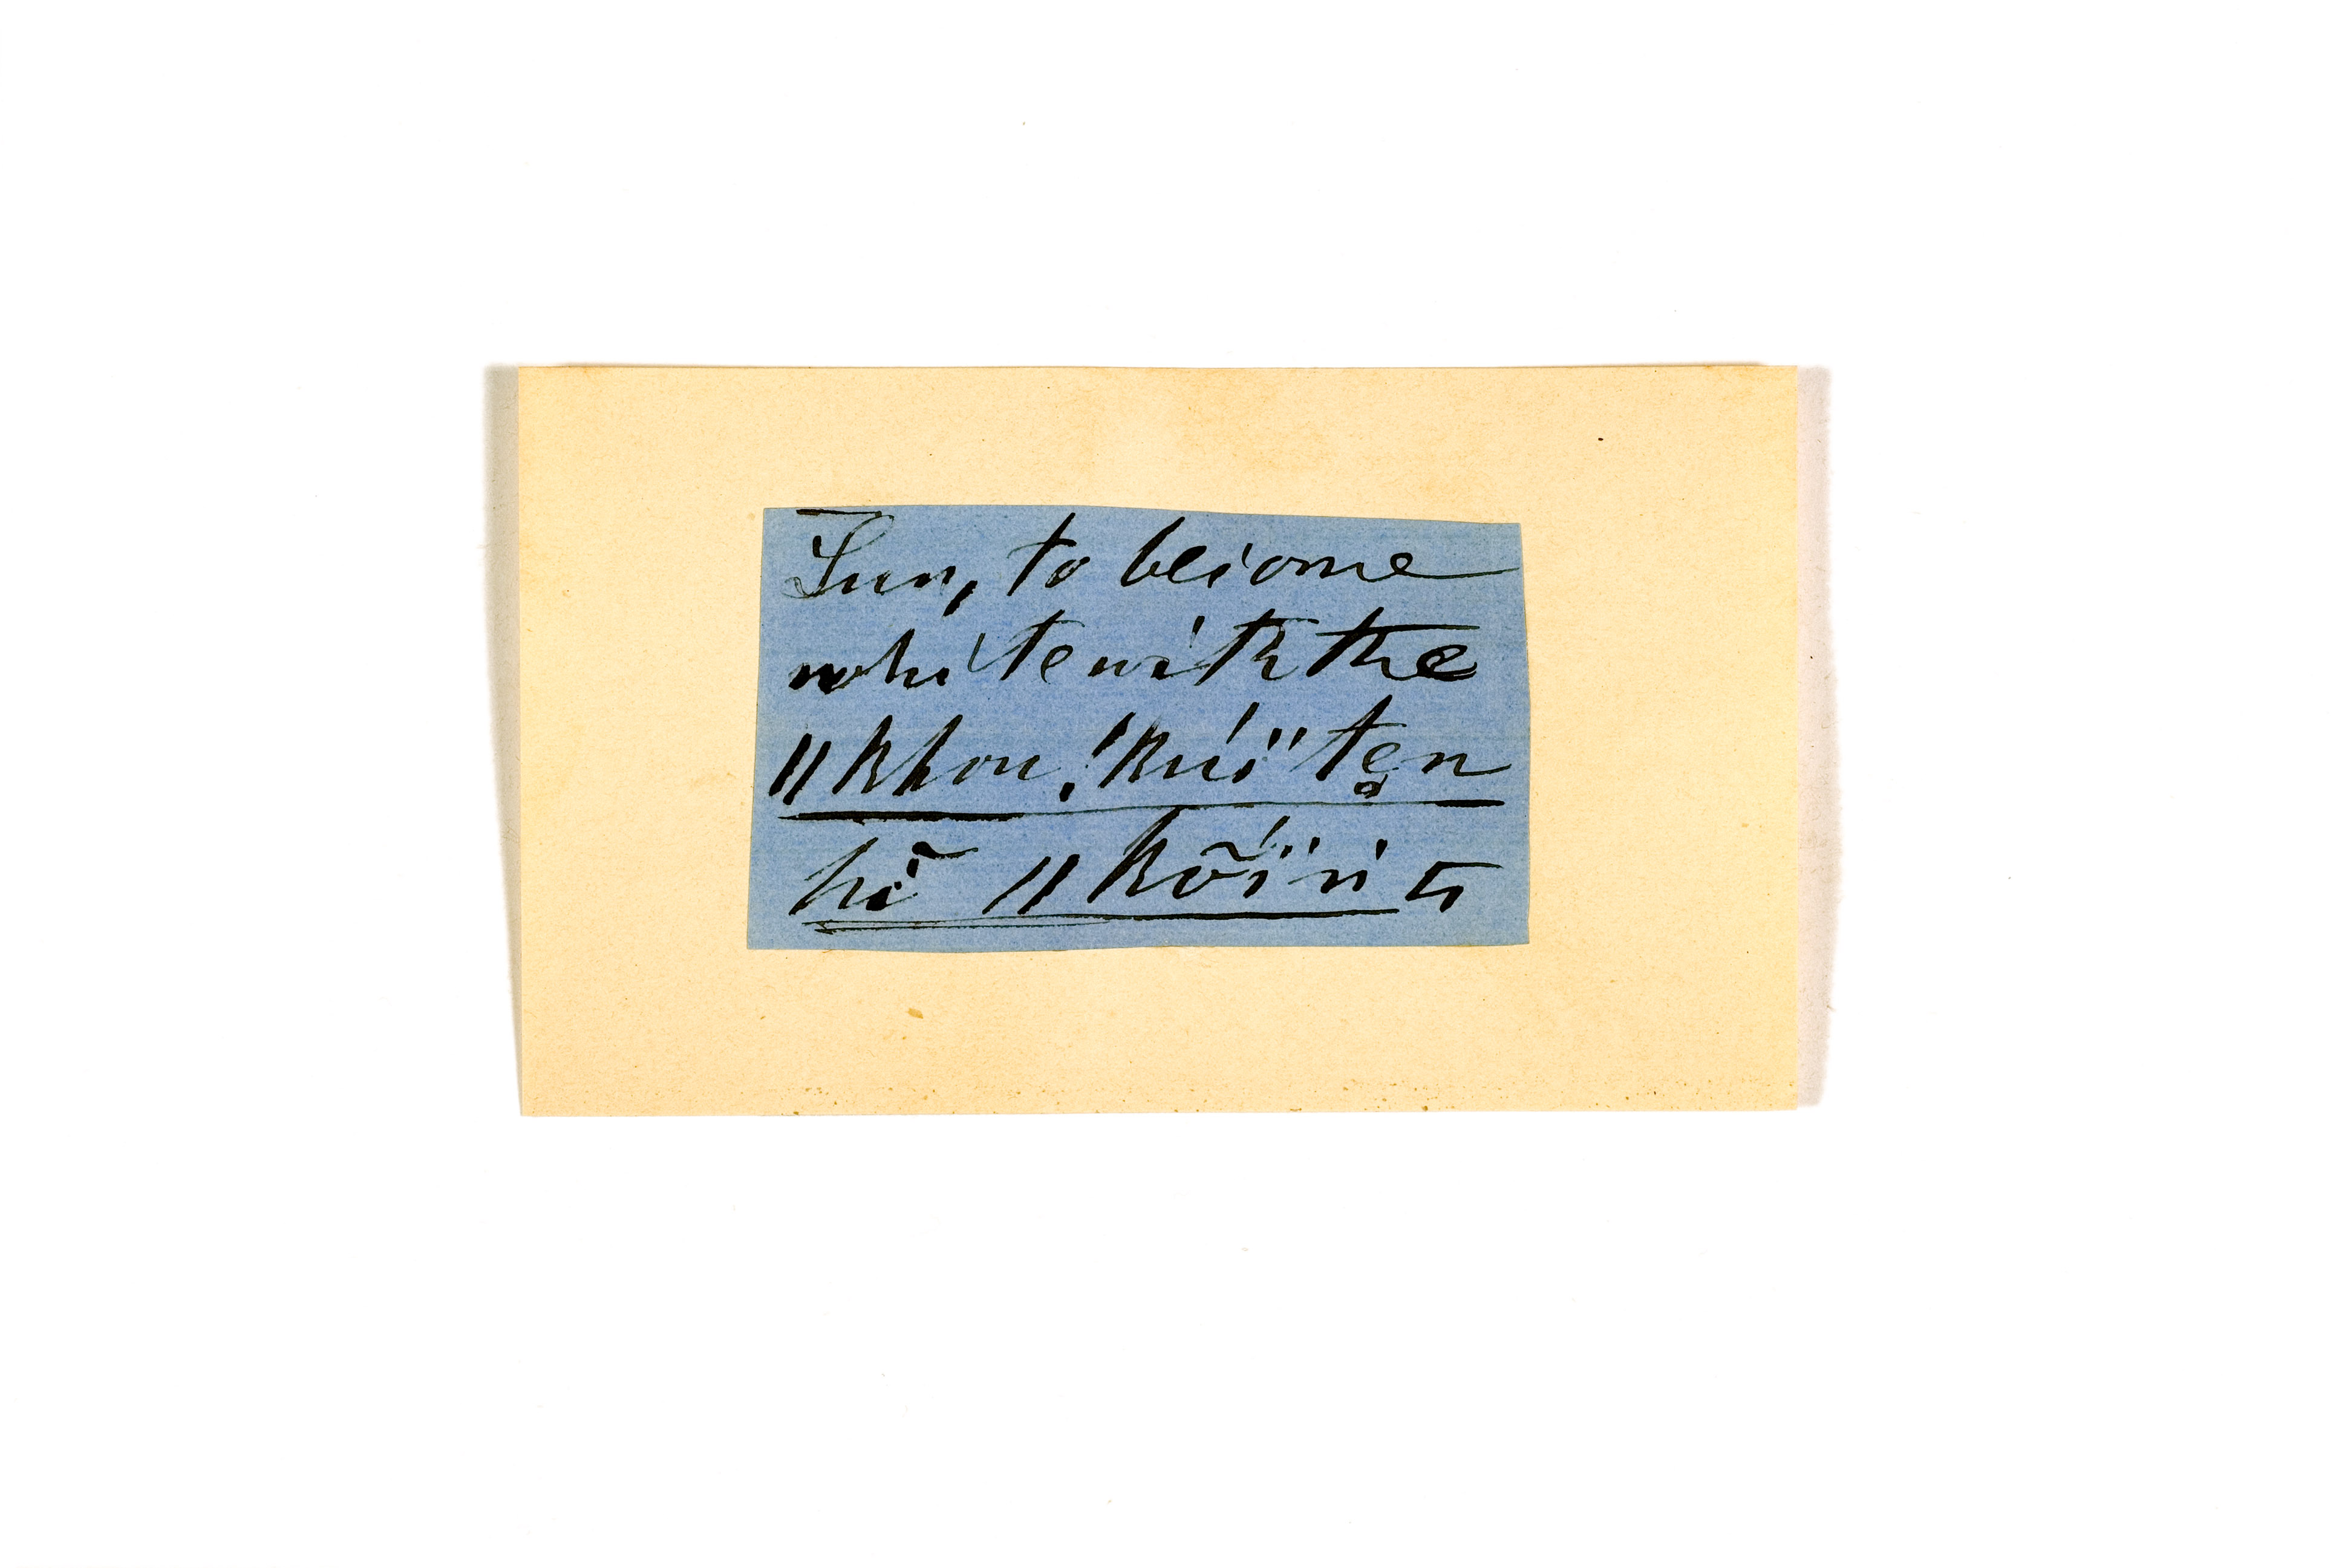 Sun, to become
white with the
ǁkhou, !kúïtẹn
hĩ ǁkṏïń ti